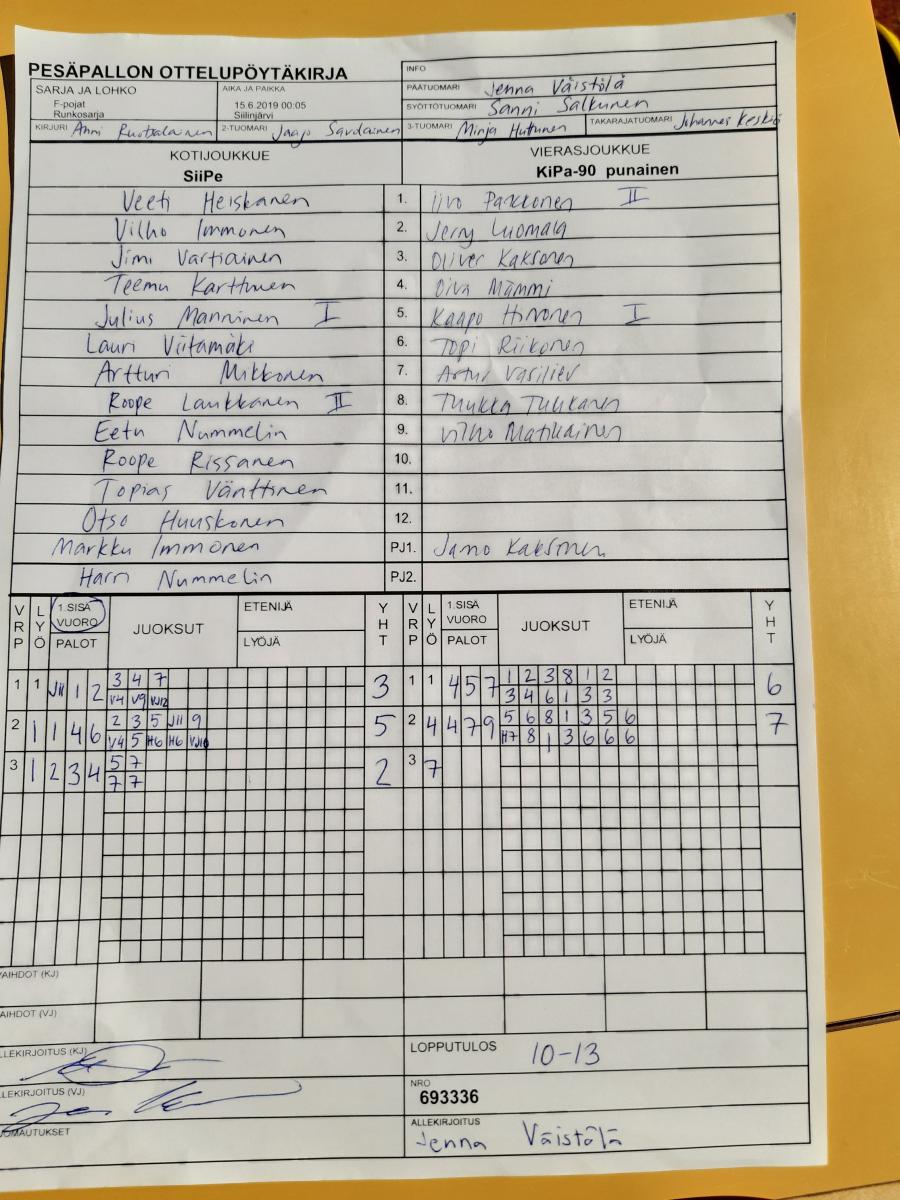 PESÄPALLON OTTELUPÖYTÄKIRJA
INFO
SARJA JA LOHKO
F-pojat
Runkosarja
AIKA JA PAIKKA
15.6.2019 00:05
Siilinjärvi
PÄÄTUOMARI Jenna Väistölä
SYÖTTÖTUOMARI Sanni Salkunen
KIRJURI Anni Ruotsalainen 2-TUOMARI Jaapo Savolainen 3-TUOMARI Minja Huttunen TAKARAJATUOMARI Johannes
KOTIJOUKKUE VIERASJOUKKUE
SiiPe KiPa-90 punainen
Veeti Heiskanen 1. Iivo Pakkonen II
Vilho Immonen 2. Jerry Luomala
Jimi Vartiainen 3. Oliver Kaksonen
Teemu Karttunen 4. Oiva Mämmi
Julius Manninen I 5. Kaapo Hirvonen I
Lauri Viitamäki 6. Topi Riikonen
Artturi Mikkonen 7. Artur Vasiliev
Roope Laukkanen II 8. Tuukka Tuukanen
Eetu Nummelin 9. Vilho Matikainen
Roope Rissanen 10.
Topias Vänttinen 11.
Otso Huuskonen 12.
Markku Immonen PJ1. Jarno Kaksonen
Harri Nummelin PJ2.
VRP LYÖ 1.SISÄ VUORO JUOKSUT ETENIJÄ YHT VRP LYÖ 1.SISÄ VUORO JUOKSUT ETENIJÄ YHT
PALOT LYÖJÄ PALOT LYÖJÄ
1 1 J11 1 2 3 4 7 3 1 1 4 5 7 1 2 3 8 1 2 6
V4 V9 VJ12 3 4 6 1 3 3
2 1 1 4 6 2 3 5 J11 9 5 2 4 4 7 9 5 6 8 1 3 5 6 7
V4 5 H6 H6 VJ10 H7 8 1 3 6 6 6
3 1 2 3 4 5 7 2 3 7
7 7
AIHDOT (KJ)
AIHDOT (VJ)
LLEKIRJOITUS (KJ)
LOPPUTULOS 10-13
LLEKIRJOITUS (VJ)
NRO
693336
UOMAUTUKSET
ALLEKIRJOITUS
Jenna Väistölä